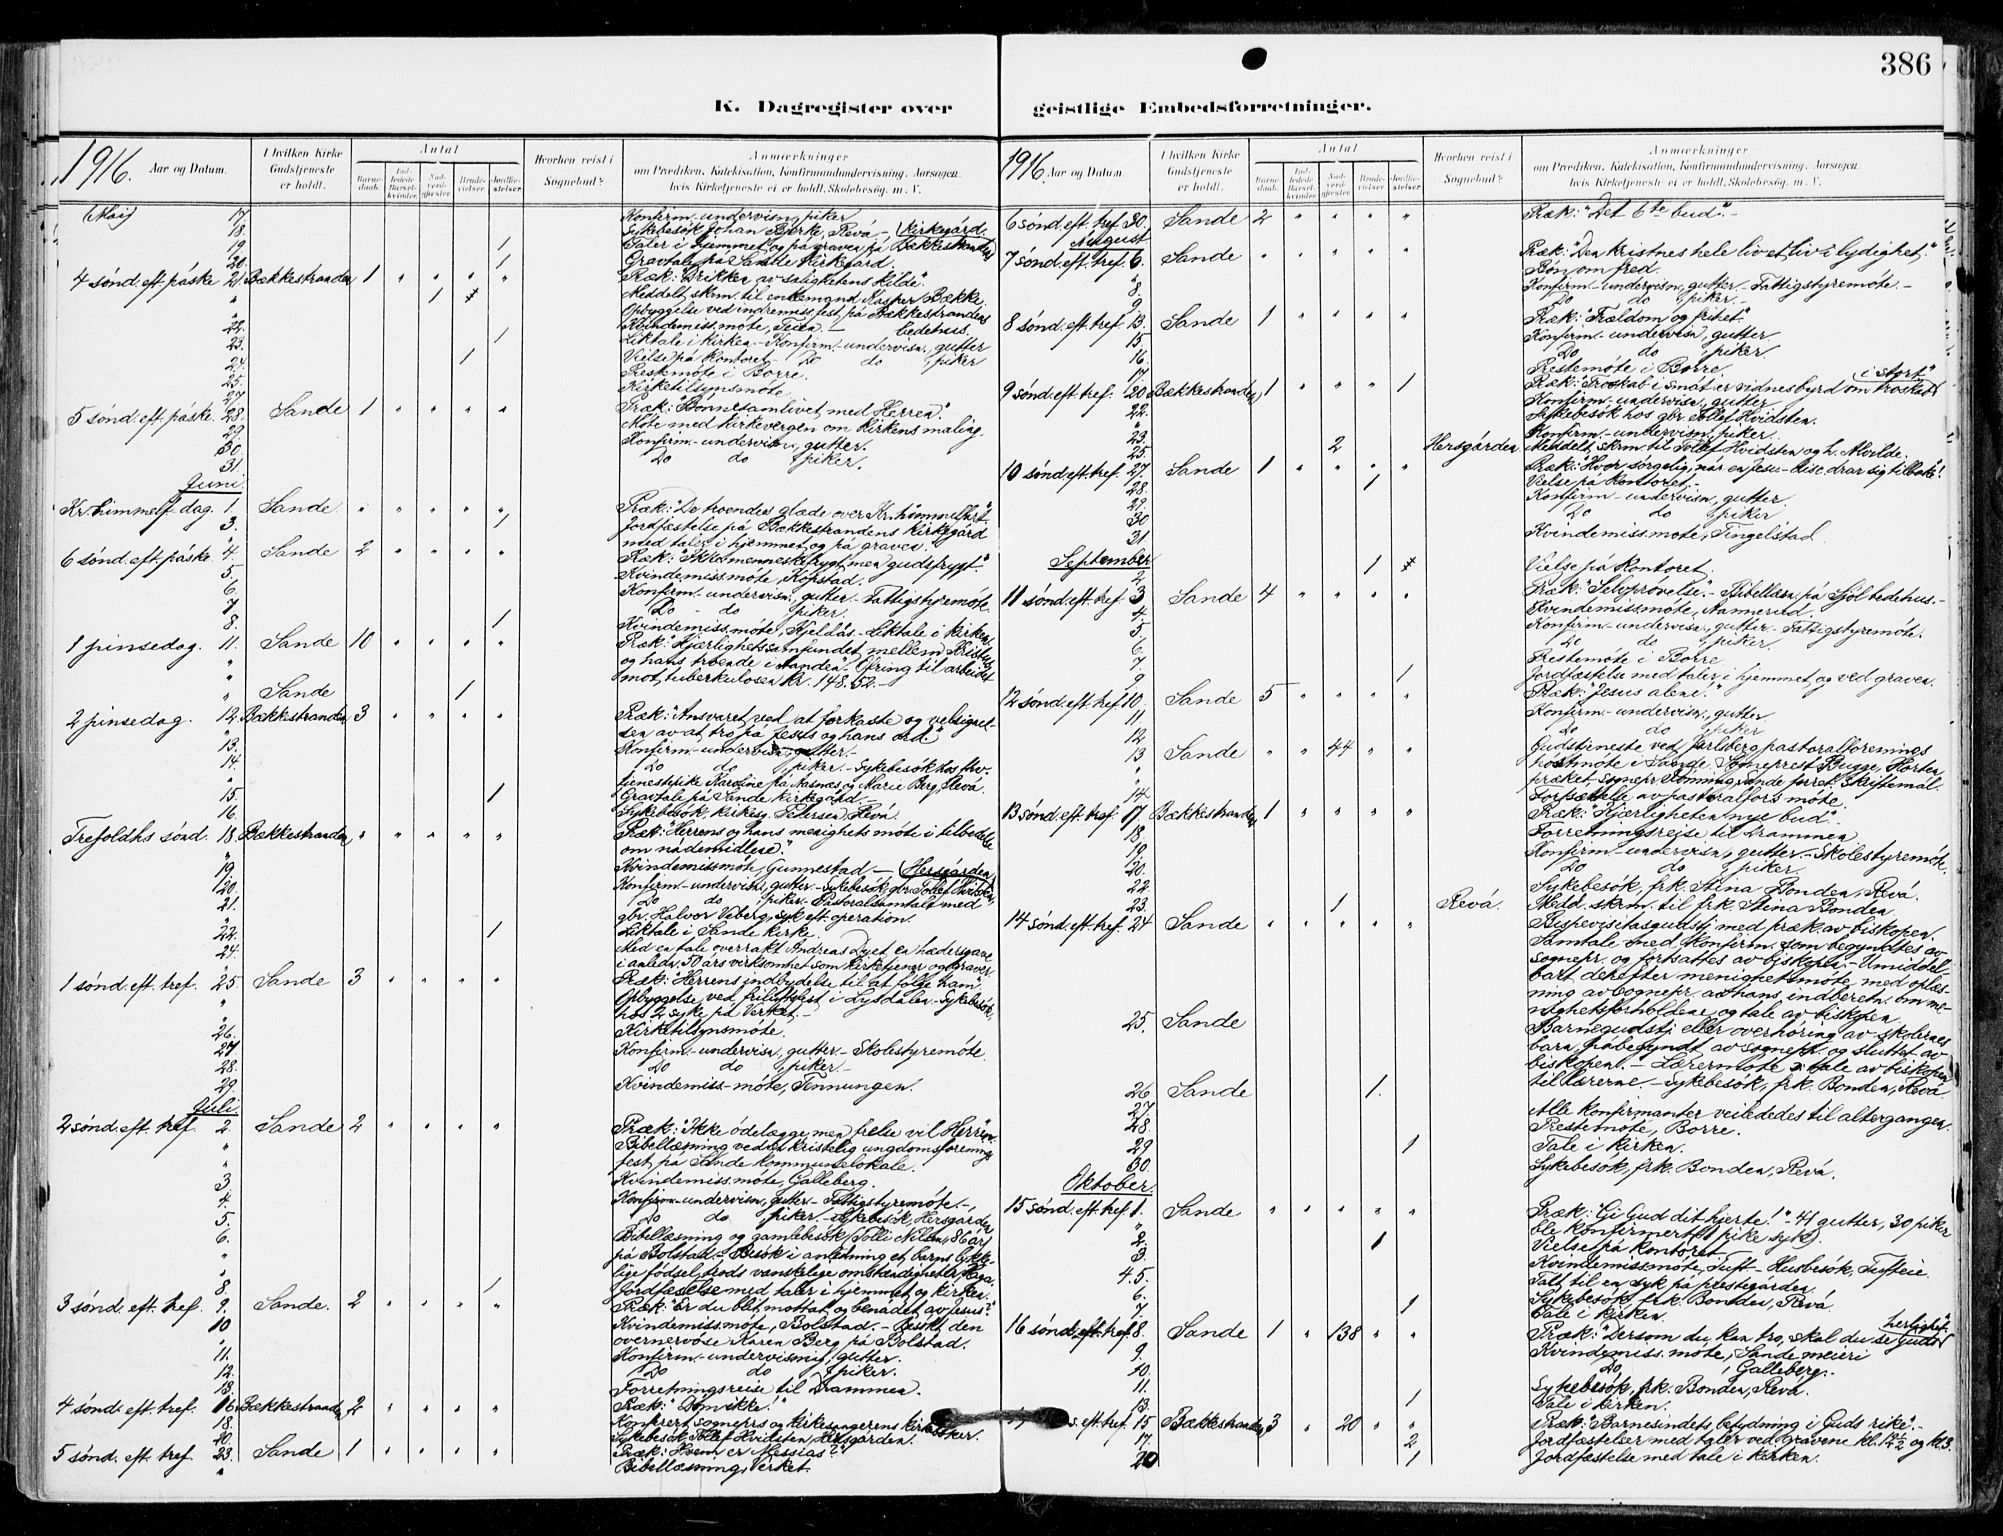 386
K. Dagregister over
geistlige Embedsforretninger.
1916. Aar og Datum.
I hvilken Kirke Gudstjeneste er holdt.
Antal
Barnedaab.
Indledede Barselkvinder.
Nadverdgjester
Brudevielser.
Jordfæstelser
Hvorhen reist i Sognebud?
Anmærkninger
om Prædiken, Katekisation, Konfirmandundervisning, Aarsagen,
hvis Kirketjeneste ei er holdt, Skolebesøg, m. V.
(Mai) 17. Konfirm.-undervisn., piker
18. Sykebesök Johan Bjerke, Revå
19. 1 Taler i hjemmet og på graven på Bækkestrandens Kirkegård.
20. 1 Gravtale på Sande Kirkegård.
4 sönd. eft. påske 21. Bækkestranden 1 " " " " Præk: "Drikken av salighetens kilde".
" 1 Meddelt skrm. til enkemand Kasper Bække.
" Opbyggelse ved indremiss.fest på Bækkestrandens bedehus.
22. Kvindemiss.möte, Teien.
23. 1 Liktale i kirken. - Konfirm.-undervisn., gutter
24. 1 Vielse på kontoret - Do do piker
25. Prestemöte i Borre.
27. Kirketilsynsmöte.
5 sönd. eft. påske. 28. Sande 1 " " " " Præk: "Bönnesamlivet med Herren".
29. Möte med kirkevergen om kirkens maling.
30. Konfirm.-undervisn., gutter.
31. Do do piker.
Juni.
Kr. himmelf. dag. 1. Sande " " " " " Præk: "De troendes glæde over Kr. himmelfart".
3. 1 Jordfæstelse på Bækkestrandens kirkegård
med taler i hjemmet og på graven.
6 sönd. eft. påske 4. Sande 2 " " " " Præk: "Ikke menneskefrygt, men gudsfrygt."
5. Kvindemiss.möte, Kopstad.
6. Konfirm.-undervisn., gutter - Fattigstyremöte.
7. Do - do piker.
8. 1 Kvindemiss.möte, Kjeldås - Liktale i kirken.
1 pinsedag. 11. Sande 10 " " " " Præk: "Kjærlighetssamfundet mellem Kristus
og hans troende i Aanden". Ofring til arbeidet
mot tuberkulosen kr. 148.52.-
" Sande 1
2 pinsedag. 12. Bækkestranden 3 " " " " Præk: "Ansvaret ved at forkaste og velsignelsen
av at tro på Jesus og hans ord."
13. Konfirm.-undervisn. gutter.-
14. Do do piker.- Sykebesök hos
tjenestepike Karoline på Aasnæs og Marie Berg, Revå
15. 1 Gravtale på Sande kirkegård -
16. Sykebesök, kirkesg. Petersen, Revå.
Trefoldhs sönd. 18 Bækkestranden " " " " " Præk: "Herrens og hans menighets möte i tilbedelse
om nådemidlene."
19. Kvindemissmöte, Gunnestad -
20. Konfirm.-undervisn., gutter - Sykebesök, gbr. Tollef Hvidsten, Hersgården
21. Do do piker - Pastoralsamtalt med
gbr. Halvor Veberg, syk eft. operation.
22. 1 Liktale i Sande kirke.
24. Med en tale overrakt Andreas Dyet en hædersgave
i anledn. 50 års virksomhet som kirketjener og graver
1 sönd. eft. tref. 25. Sande 3 " " " " Præk: "Herrens indbydelse til at fölge ham"
" Opbyggelse ved friluftsfest i Lysdalen - Sykebesök
hos 2 syke på Verket.-
26. Kirketilsynsmöte.
27. Konfirm.-undervisn, gutter - Skolestyremöte
28. Do do piker.
29. Kvindemiss-möte, Tennungen.
Juli.
2 sönd. eft. tref. 2. Sande 2 " " " " Præk: "Ikke ödelægge, men frelse vil Herren".
" Bibellæsning ved et kristelig ungdomsforenings
fest på Sande kommunelokale.
3. Kvindemiss.möte, Galleberg.
4. Konfirm-undervisn., gutter - Fattigstyremöte -
5. Do do piker.- Sykebesök, Hersgården
6. Bibellæsning og gamlebesök (Tolli Nilsen, 86 år)
på Bolstad. - Besök i anledning et barns lykkelige
födsel, trods vanskelige omstændigheter, Haga.
8. 1 Jordfæstelse med taler i hjemmet og kirken.
3 sönd. eft. tref. 9. Sande. 2 " " " " Præk: "Er du blit mottat og benådet av Jesus?"
10 Kvindemiss.möte, Bolstad. - Besökt den
overnervöse Karen Berg på Bolstad.
11. Konfirm.-undervisning, gutter.
12. Do do piker.
13. Forretningsreise til Drammen.
4 sönd. eft. tref. 16. Bækkestranden 2 " " " " Præk: "Döm ikke!"
18. Konferert sogneprs og kirkesangerens kirkeböker.
20. Sykebesök Tollef Hvidsten, Hersgården.
5 sönd. eft. tref. 23. Sande 1 " " " " Præk: "Hvem er Messias?"
" Bibellæsning, Verket.
1916. Aar og Datum.
I hvilken Kirke Gudstjeneste er holdt.
Antal
Barnedaab.
Indledede Barselkvinder.
Nadverdgjester
Brudevielser.
Jordfæstelser
Hvorhen reist i Sognebud?
Anmærkninger
om Prædiken, Katekisation, Konfirmandundervisning, Aarsagen,
hvis Kirketjeneste ei er holdt, Skolebesøg, m. V.
6 sönd. eft. tref. 30. Sande 2 " " " " Præk: "Det 6te bud".-
August
7 sönd. eft. tref. 6. Sande " " " " " Præk: "Den kristnes hele livet, liv i lydighet."
" Bön om fred.
8. Konfirm.-undervisn., gutter - Fattigstyremöte.-
9. Do do piker.-
8 sönd. eft. tref. 13. Sande 1 " " " " Præk: "Trældom og frihet"
15. Konfirm.-undervisn., gutter
16. Do do piker.
17. Prestemöte i Borre.
9 sönd. eft. tref. 20 Bækkestranden 1 " " " 1 Præk: "Troskab i småt er vidnesbyrd om troskab i stort"
22. Konfirm.-undervisn., gutter
" Sykebesök hos gbr. Tollef Hvidsten.
23. Konfirm.-undervisn. piker.
25. 2 Hersgården Meddelt skrm. til Tollef Hvidsten og h. Alvilde.
10 sönd. eft. tref. 27. Sande 1 " " " " Præk: "Hvor sörgelig, når en Jesu-disc. drar sig tilbake"!
28. 1 Vielse på kontoret.-
29. Konfirm-undervisn., gutter
30 Do do piker
31. Kvindemiss.möte, Tingelstad.
September
2. 1 Vielse på kontoret.
11 sönd. eft. tref. 3 Sande 4 " " " " Præk: "Selvprövelse".- Bibellæsn. på Sjöl bedehus.-
4. Kvindemissmöte, Aannerud
5. Konfirm.-undervisn., gutter - Fattigstyremöte.
6. Do do piker.
7. Prestemöte i Borre
9. 1 Jordfæstelse med taler i hjemmet og ved graven.
12 sönd. eft. tref 10. Sande 5 " " " " Præk: "Jesus alene!"
11. Konfirm.-undervisn., gutter
12. Do do piker
13 Sande " " 44 " " Gudstjeneste ved Jarlsberg pastoralforenings
höstmöte i Sande. Sogneprest Bugge, Horten,
præket.
14. Forsættelse av pastoralfors möte.
13 sönd. eft. tref. 17. Bækkestranden 1 " " " " Præk: "Kjærligheten nye bud".-
18. Forretningsreise til Drammen
19. Konfirm-undervisn., gutter - Skolestyremöte.
20. Do do piker
22. Sykebesök, frk. Stina Bonden, Revå.
23. 1 Revå. Medd. skrm. til frk. Stina Bonden
14 sönd. eft. tref. 24 Sande " " " " " Bispevisitasgudstj. med præk. av biskopen.
Samtale med konfirm. som begyndtes av
sognepr. og fortsattes av biskopen. - Umiddelbart
derefter menighetsmöte med oplæsning
av sognepr. av hans indberetn. om menighetsforholdene
og tale av biskopen
25. Sande Barnegudstj. eller overhöring av skolernes
barn, påbegyndt av sognepr. og sluttet av
biskopen. - Lærermöte, tale av biskopen
til lærerne. - Sykebesök, frk. Bonden, Revå
26 Sande 1.
27. Alle konfirmanter veilededes til altergangen.
28. Prestemöte, Borre.
29 1 Tale i kirken.
30. Sykebesök, frk. Bonden, Revå.
Oktober.
15 sönd. eft. tref. 1. Sande " " " " " Præk: "Gi Gud dit hjerte!" - 41 gutter, 30 piker
ble konfirmert (1 pike syk).
2. 1 Vielse på kontoret.
3. Kvindemissmöte, Tuft - Husbesök, Tufteie
4.5. Tatt til en syk på prestegården.
6. Sykebesök, frk. Bonden, Revå.
7. 1 Tale i kirken.
16 sönd. eft. tref. 8. Sande 1 " 138 " " Præk: "Dersom du kan tro, skal du se Guds herlighet"
9. Kvindemiss.möte, Sande meieri
10. Do , Galleberg.-
11. Sykebesök, frk. Bonden, Revå.
13. 1 Tale i kirken.
s. eft. tref. 15 Bækkestranden 3 " 20 " " Præk: "Barnesindets betydning i Guds rike".-
17. 2 Jordfæstelser med taler ved gravene
20 1 Jordfæstelse med tale i kirken.